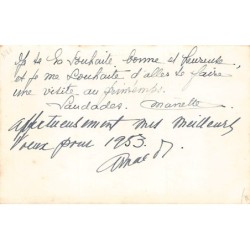 je te la souhaite bonne et heureuse,
et je me souhaite d'aller te faire
une visite au printemps.
Saudades. Manette
affectueusement mes meilleurs
voeux pour 1953.